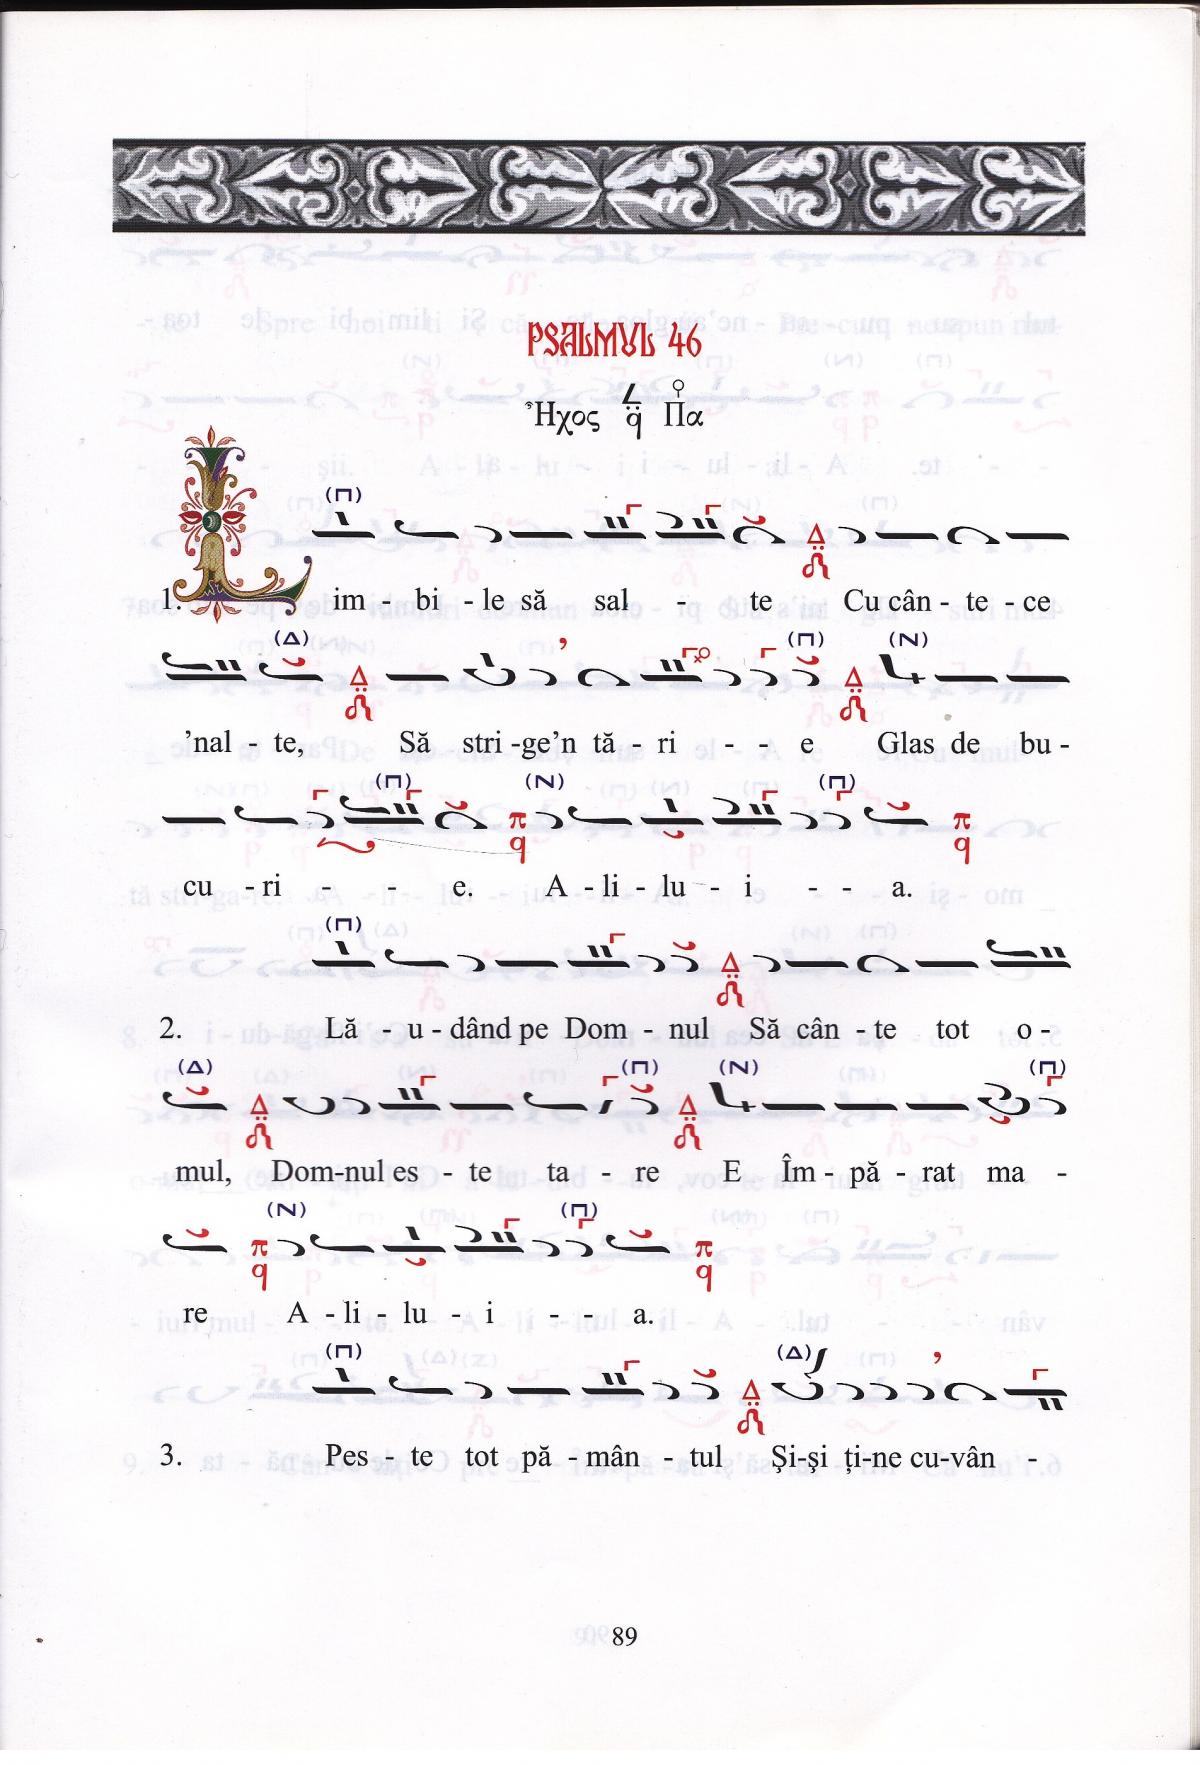 PSALMUL 46
Ἦχος q̈ Πα
(Π)
1. Lim - bi - le să sal - te Cu cân - te - ce
(Δ) (Π) (N)
'nal - te, Să stri - ge'n tă - ri - - e Glas de bu -
(Π) (N) (Π)
cu - ri - - e. A - li - lu - i - - a.
(Π)
2. Lă - u - dând pe Dom - nul Să cân - te tot o -
(Δ) (Π) (N) (Π)
mul, Dom-nul es - te ta - re E Îm - pă - rat ma -
(N) (Π)
re A - li - lu - i - - a.
(Π) (Δ)
3. Pes - te tot pă - mân - tul Şi-şi ţi-ne cu-vân -
89